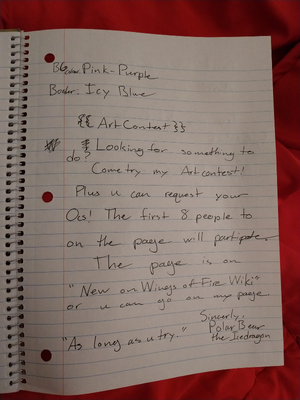 BG Color: Pink-Purple
Border: Icy Blue
{{ Art Contest }}
Looking for something to
do? Come try my Art contest!
Plus u can request your
Ocs! The first 8 people to
on the page will participate.
The page is on
"New on Wings of Fire Wiki"
or u can go on my page
Sincerly,
Polar Bear
the Icedragon
"As long as u try."